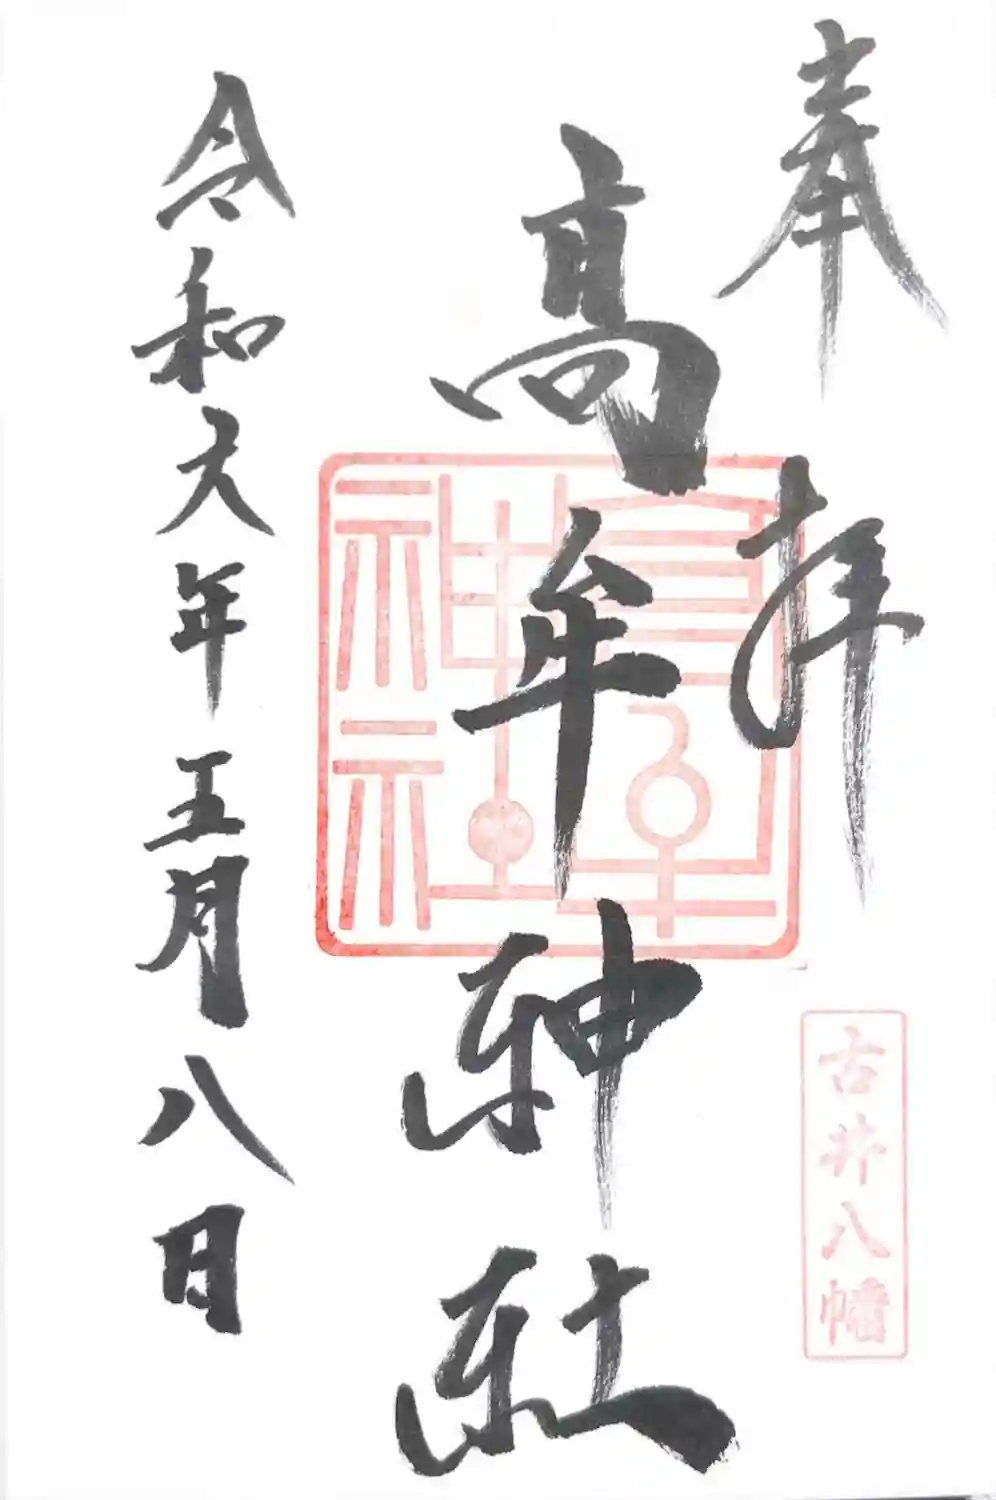 奉拝
古井八幡
高牟神社
高牟神社
令和六年五月八日